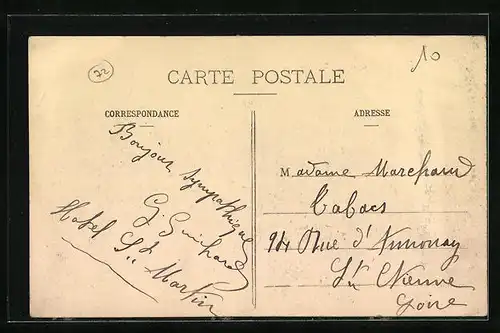 72
10
CARTE POSTALE
CORRESPONDANCE
Bonjour sympathique
G Guichard
Hotel St Martin
ADRESSE
Madame Marchand
Tabacs
94 Rue d'Annonay
St Etienne
Loire